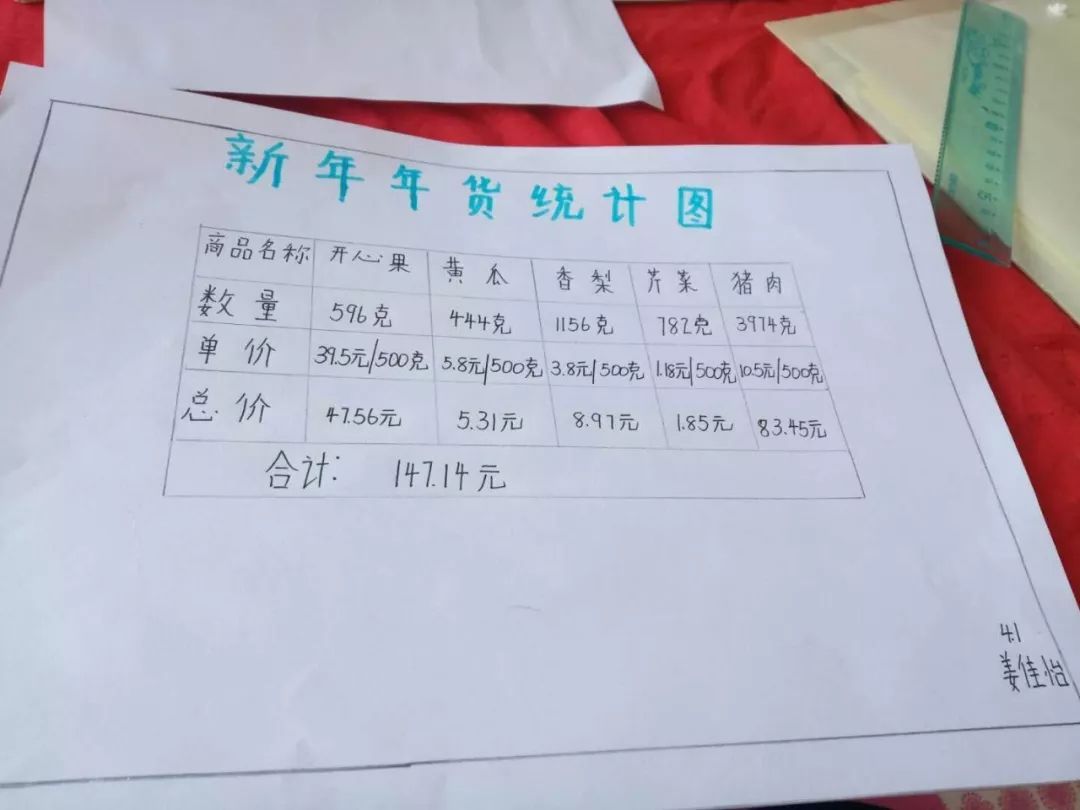 新年年货统计图
商品名称 开心果 黄瓜 香梨 芹菜 猪肉
数量 596克 444克 1156克 782克 3974克
单价 39.5元/500克 5.8元/500克 3.8元/500克 1.18元/500克 10.5元/500克
总价 47.56元 5.31元 8.97元 1.85元 83.45元
合计: 147.14元
4.1
姜佳怡